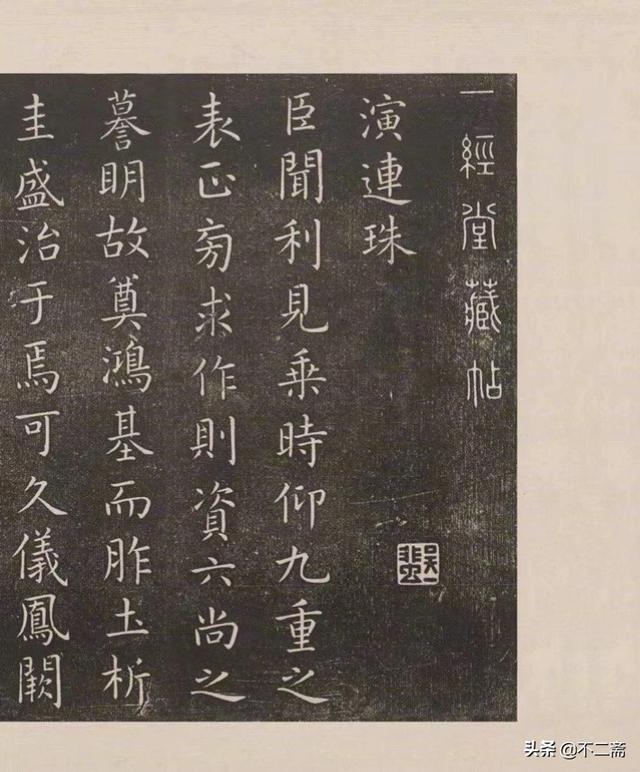 一經堂藏帖
演連珠
臣聞利見乘時仰九重之
表正匃求作則資六尚之
謩明故奠鴻基而胙土析
圭盛治于焉可久儀鳳闕
頭条 @不二斋